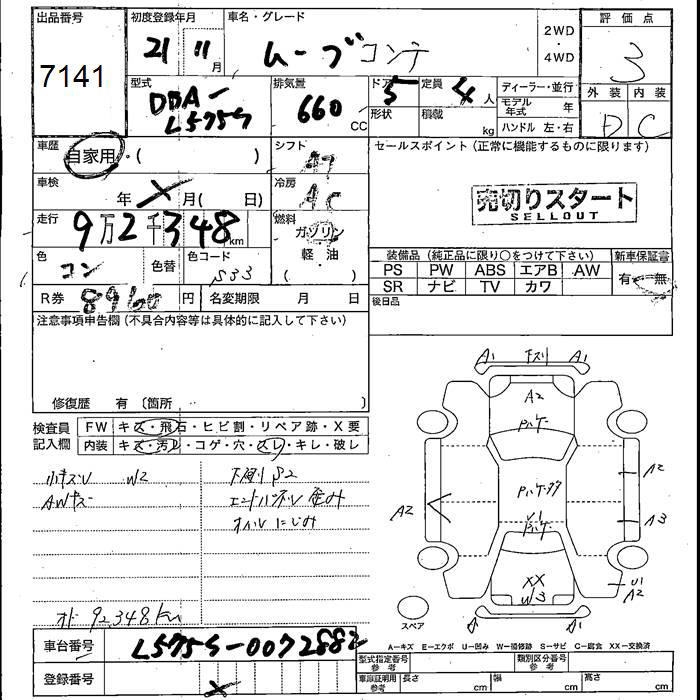 出品番号
7141
初度登録年月
21 11月
車名・グレード
ムーブコンテ
2WD
・
4WD
評価点
3
外装 内装
D C
型式
DBA-
L575S
排気量
660 CC
ドア 5
形状
定員 4人
積載 kg
ディーラー・並行
モデル年式 年
ハンドル 左・右
車歴
自家用・( )
シフト
AT
セールスポイント (正常に機能するものに限ります)
売切りスタート
SELLOUT
車検
年 月( 日)
冷房
AC
走行
9万2千348km
燃料
ガソリン
軽・油
色
コン
色替
色コード
S33
R券 8960円
名変期限 月 日
装備品 (純正品に限り○をつけて下さい)
PS PW ABS エアB AW
SR ナビ TV カワ
新車保証書
有・無
後日品
注意事項申告欄(不具合内容等は具体的に記入して下さい)
修復歴 有 〔箇所 〕
検査員
記入欄
FW キズ・飛石・ヒビ割・リペア跡・X要
内装 キズ・汚レ・コゲ・穴・スレ・キレ・破レ
小キズU W2
AWキズ
下廻りS2
エンドパネル歪み
オイルにじみ
オド 92,348km
A1 下スリ A1
A2
A2
A2
A3
XX
W3
U1
A2
A A
スペア
A-キズ E-エクボ U-凹み W-補修跡 S-サビ C-腐食 XX-交換済
車台番号 L575S-0072882
登録番号
型式指定番号
参考
類別区分番号
参考
車庫証明用
参考
長さ cm
幅 cm
高さ cm